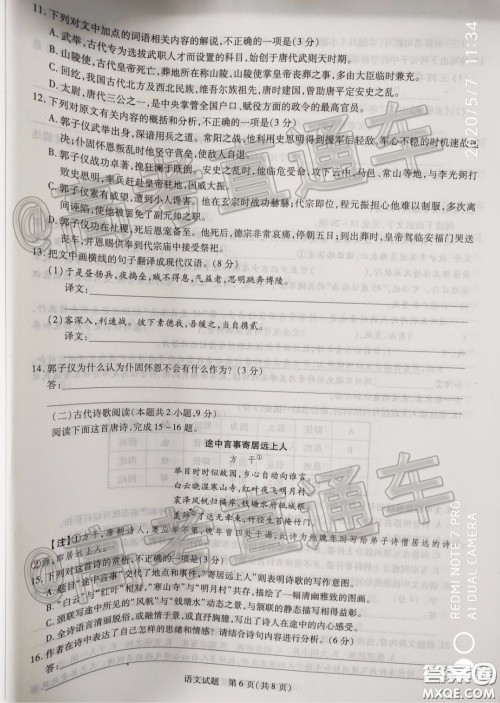 11. 下列对文中加点的词语相关内容的解说,不正确的一项是(3分)
A. 武举,古代专为选拔武职人才而设置的科目,始创于唐代武则天时期。
B. 山陵使,古代皇帝死亡,葬地所在称山陵,山陵使是掌皇帝丧葬之事,多由大臣临时兼充。
C. 回纥,我国古代北方及西北民族,维吾尔族祖先,唐时建国,曾助唐平定安史之乱。
D. 太尉,唐代三公之一,是中央掌管全国户口、赋役方面的政令的最高官员。
12. 下列对原文有关内容的概括和分析,不正确的一项是(3分)
A. 郭子仪武举出身,深谙用兵之道。常阳之战,他利用史思明得到援军后轻敌、军心不稳的时机速战
仆固怀恩叛乱时他坚守营垒,使敌人自退。
B. 郭子仪战功卓著,挽狂澜于既倒。安史之乱时,他临危受命,攻下云中、马邑、常山等地,与李光弼打
败史思明,率兵赶赴皇帝驻地,因威大振。
C. 郭子仪素有威望,遭到小人谗害。他在玄宗时战功赫赫,代宗即位后,程元振担心他难以控制,多次离
间诬陷,使他被罢免了副元帅之职。
D. 郭子仪功在社稷,死后恩宠备至。他死后,德宗非常哀痛,停朝五日;到出葬时,皇帝驾临安福门哭送
丧车,并恩赐供奉到代宗庙中接受祭祀。
13. 把文中画横线的句子翻译成现代汉语。(8分)
(1)于是昼扬兵,夜捣垒,贼不得息,气益老,思明跳奔博陵。
译文:
(2)客深入,利速战。彼下素德我,吾缓之,当自携贰。
译文:
14. 郭子仪为什么认为仆固怀恩不会有什么作为?(3分)
答:
(二)古代诗歌阅读(本题共2小题,9分)
阅读下面这首唐诗,完成15~16题。
途中言事寄居远上人
方干①
举目时时似故园,乡心自动向谁言
白云晓湿寒山寺,红叶夜飞明月村
震泽风帆归橘岸,钱塘水府抵城根
了达无牵束,竹径生苔掩竹门
【注】①方干,唐朝诗人,
即居远上人。
15. 下列对这首诗的赏析,不正确的一项是(3分)
A. 题目“途中言事”交代了地点和事件,“寄居远上人”则表明诗歌的写作意图。
B. “白云”与“红叶”相对,“寒山寺”与“明月村”共存,描绘了一幅清幽雅致的图画。
C. 颔联写途中所见的“风帆”与“钱塘水”的动态景象,与颈联的静态描写相得益彰。
D. 全诗语言清丽脱俗,或融情于景,或直抒胸臆,写出了诗人在途中的内心感受。
16. 作者在诗中表达了自己怎样的思绪和情感?请结合诗句内容进行分析。(6分)
答:
语文试题 第6页(共8页)
@高考直通车
2020/5/7 11:34
REDMI NOTE 7 PRO
AI DUAL CAMERA
答案圈
MXQE.COM